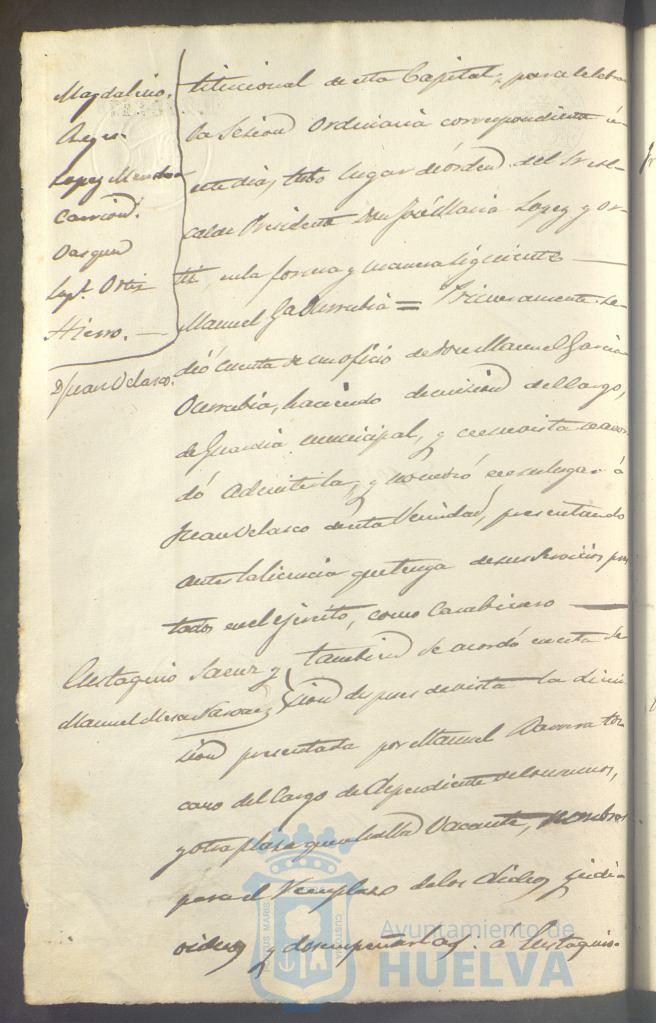 Magdaleno.
Reyes.
Lopez Mendoza
Carrion.
Vazquez
Supt. Ortiz
Hierro.
D. Juan Velasco.
titucional de esta Capital, para celebrar
la Sesion Ordinaria correspondiente á
este dia, tubo lugar de órden del Sr. Al-
calde Presidente Don José Maria Lopez y Or-
tiz en la forma y manera siguiente
Manuel Ga = Primeramente se
dió cuenta de un oficio de Don Manuel Garcia
haciendo dimision del cargo,
de Guardia municipal, y en su vista se acor-
dó admitirla, y nombró en su lugar á
Juan Velasco de esta Vecindad, presentando
antes la licencia que tenga de sus Servicios pres
tados en el ejército, como Carabinero
Eustaquio Saenz y
Manuel Mesa Narvaez
tambien se acordó en esta Se
sion despues de vista la dimi
sion presentada por Manuel Barrera
caro del Cargo de Dependiente de Consumos,
y otra plaza que se halla Vacante, nombrar
para el reemplazo de los dichos
y desempeñarlas á Eustaquio
PORTUS MARIS CUSTODIA
Ayuntamiento de
HUELVA